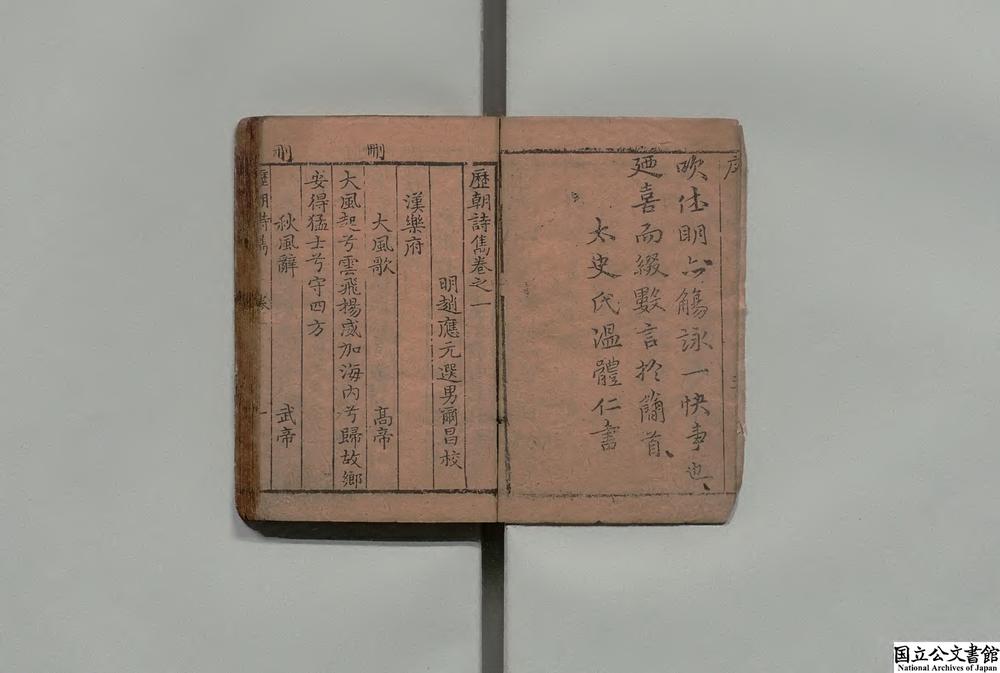 序
吹佳明亦觴詠一快事也
廼喜而綴數言於簡首
太史氏溫體仁書
歷朝詩雋卷之一
明趙應元選男爾昌校
漢樂府
刪
大風歌 高帝
大風起兮雲飛揚威加海內兮歸故鄉
安得猛士兮守四方
刪
秋風辭 武帝
歷朝詩雋 卷一 一
国立公文書館
National Archives of Japan